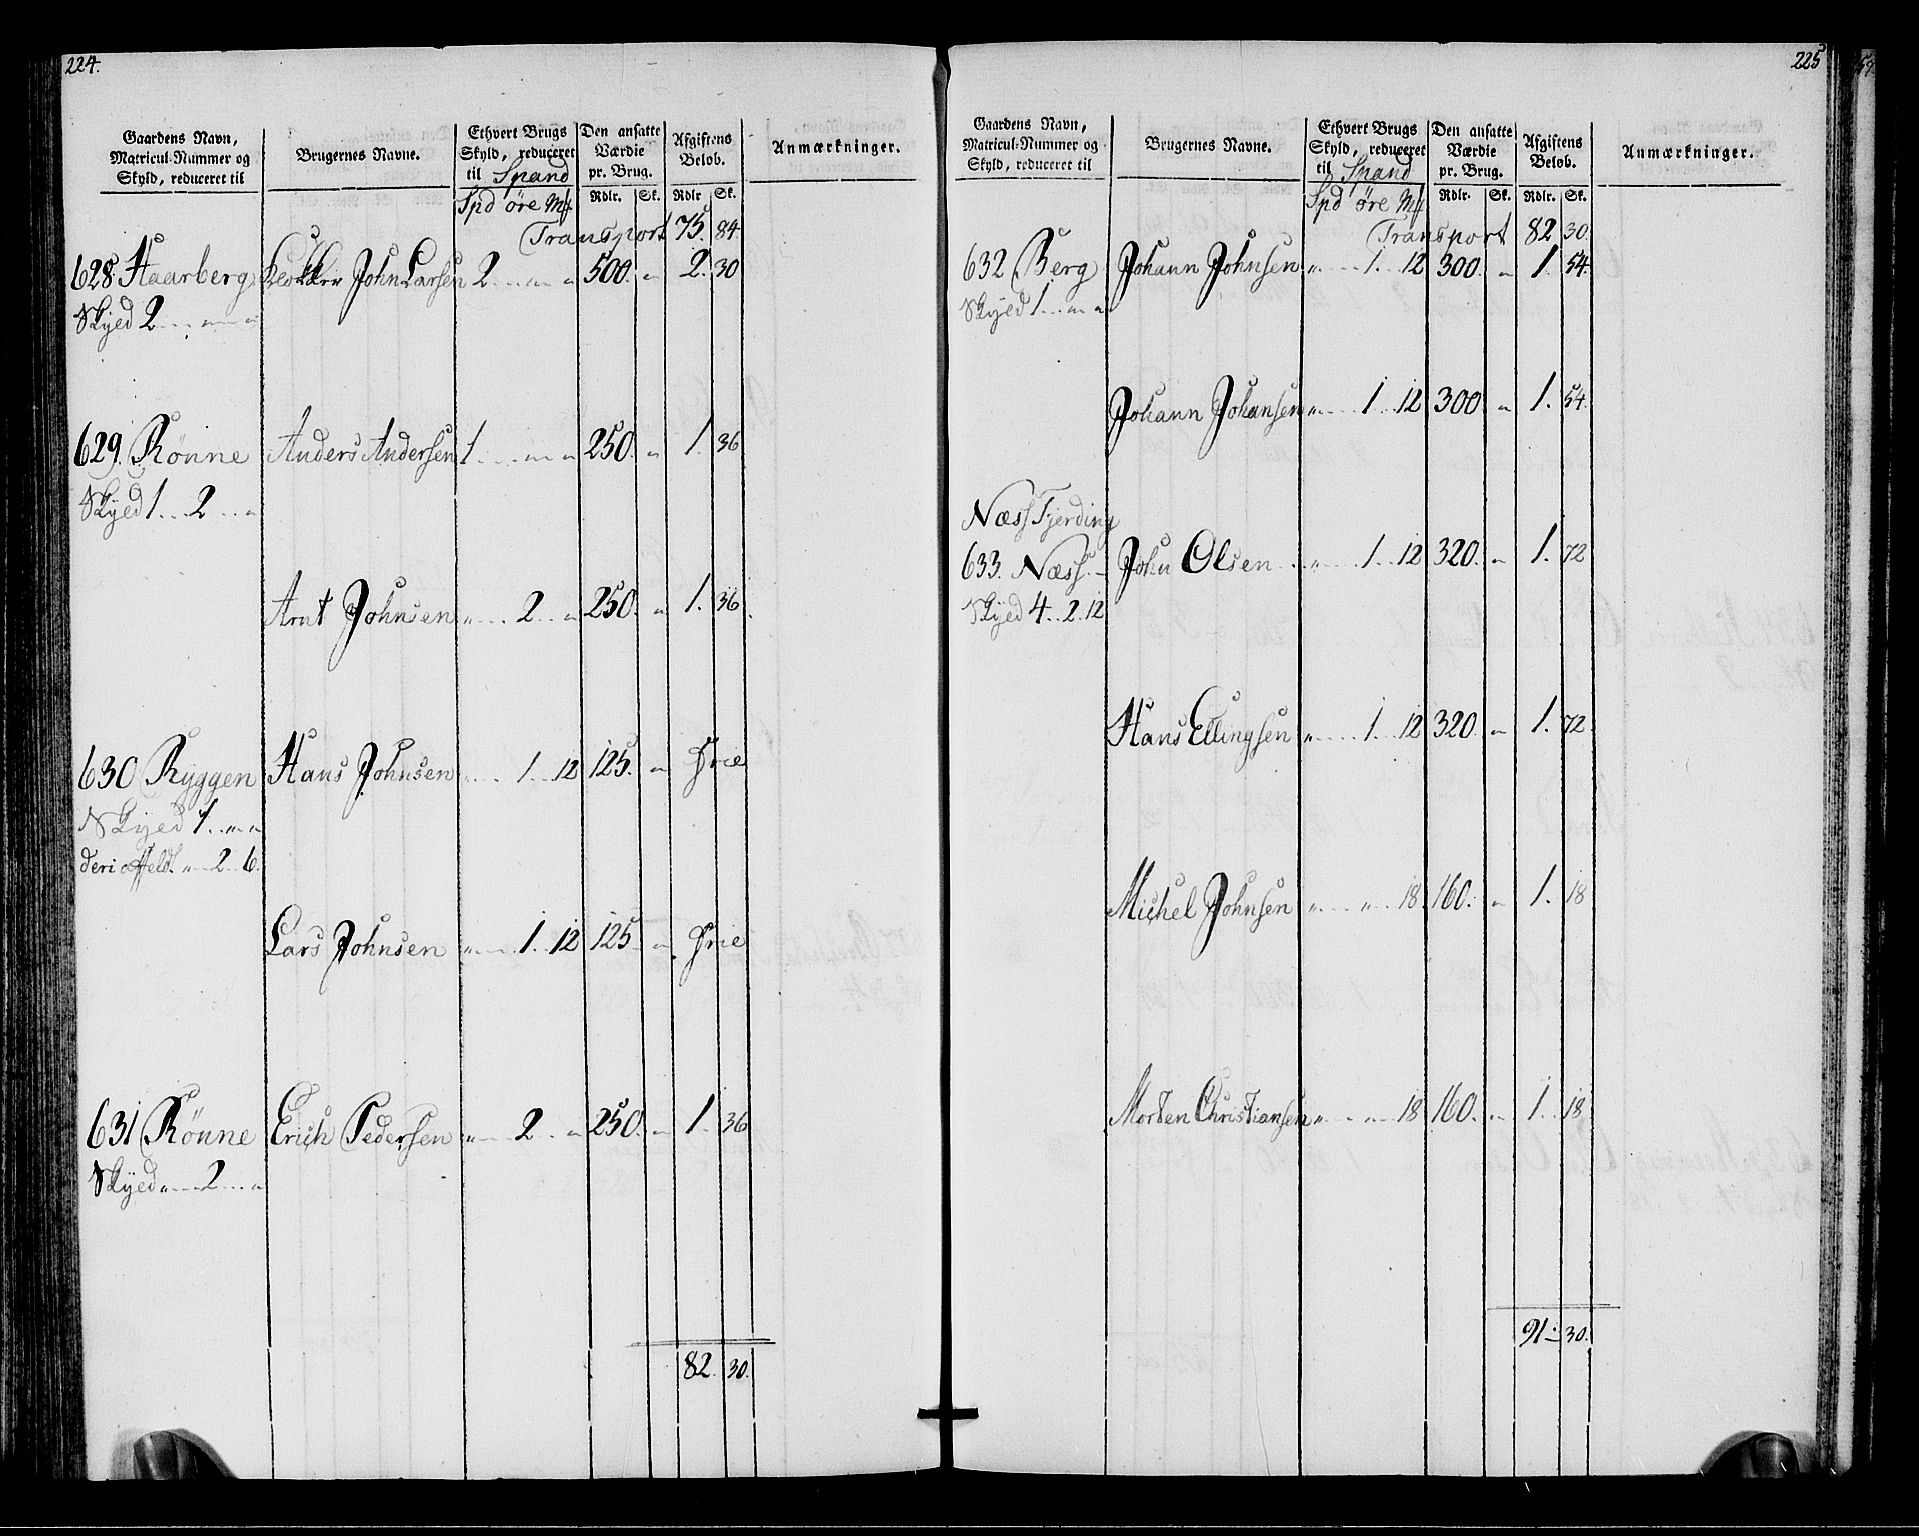 224.
Gaardens Navn,
Matricul-Nummer og
Skyld, reduceret til
Brugernes Navne.
Ethvert Brugs
Skyld, reduceret
til Spand
Den ansatte
Værdie
pr. Brug.
Afgiftens
Beløb.
Anmærkninger.
Spd øre Mk Rdlr. Sk. Rdlr. Sk.
Transport 75. 84
628. Haarberg Klokker John Larsen 2 .. „ „ 500. „ 2. 30
Skyld 2 .. „ „
629. Rönne Anders Andersen 1 .. „ „ 250. „ 1. 36
Skyld 1 .. 2 .. „
Arnt Johnsen „ .. 2 .. „ 250. „ 1. 36
630 Ryggen Hans Johnsen „ .. 1 .. 12 125. „ Frie
Skyld 1 .. „ „
deri affeldt „ .. 2 .. 6.
Lars Johnsen „ .. 1 .. 12 125 „ Frie
631 Rönne Erich Pedersen „ .. 2 .. „ 250. „ 1. 36
Skyld „ .. 2 .. „
82. 30.
225
Gaardens Navn,
Matricul-Nummer og
Skyld, reduceret til
Brugernes Navne.
Ethvert Brugs
Skyld, reduceret
til Spand
Den ansatte
Værdie
pr. Brug.
Afgiftens
Beløb.
Anmærkninger.
Spd øre Mk Rdlr. Sk. Rdlr. Sk.
Transport 82 30.
632 Berg Johann Johnsen „ .. 1 .. 12 300. „ 1. 54
Skyld 1 .. „ „
Johann Johansen „ .. 1 .. 12 300 „ 1. 54.
Næss Fjerding
633. Næss. John Olsen „ .. 1 .. 12 320. „ 1. 72
Skyld 4 .. 2. 12
Hans Ellingsen „ .. 1 .. 12 320. „ 1. 72
Michel Johnsen „ .. „ .. 18 160. „ 1. 18
Morten Christiansen „ .. „ .. 18 160. „ 1. 18
91 30.